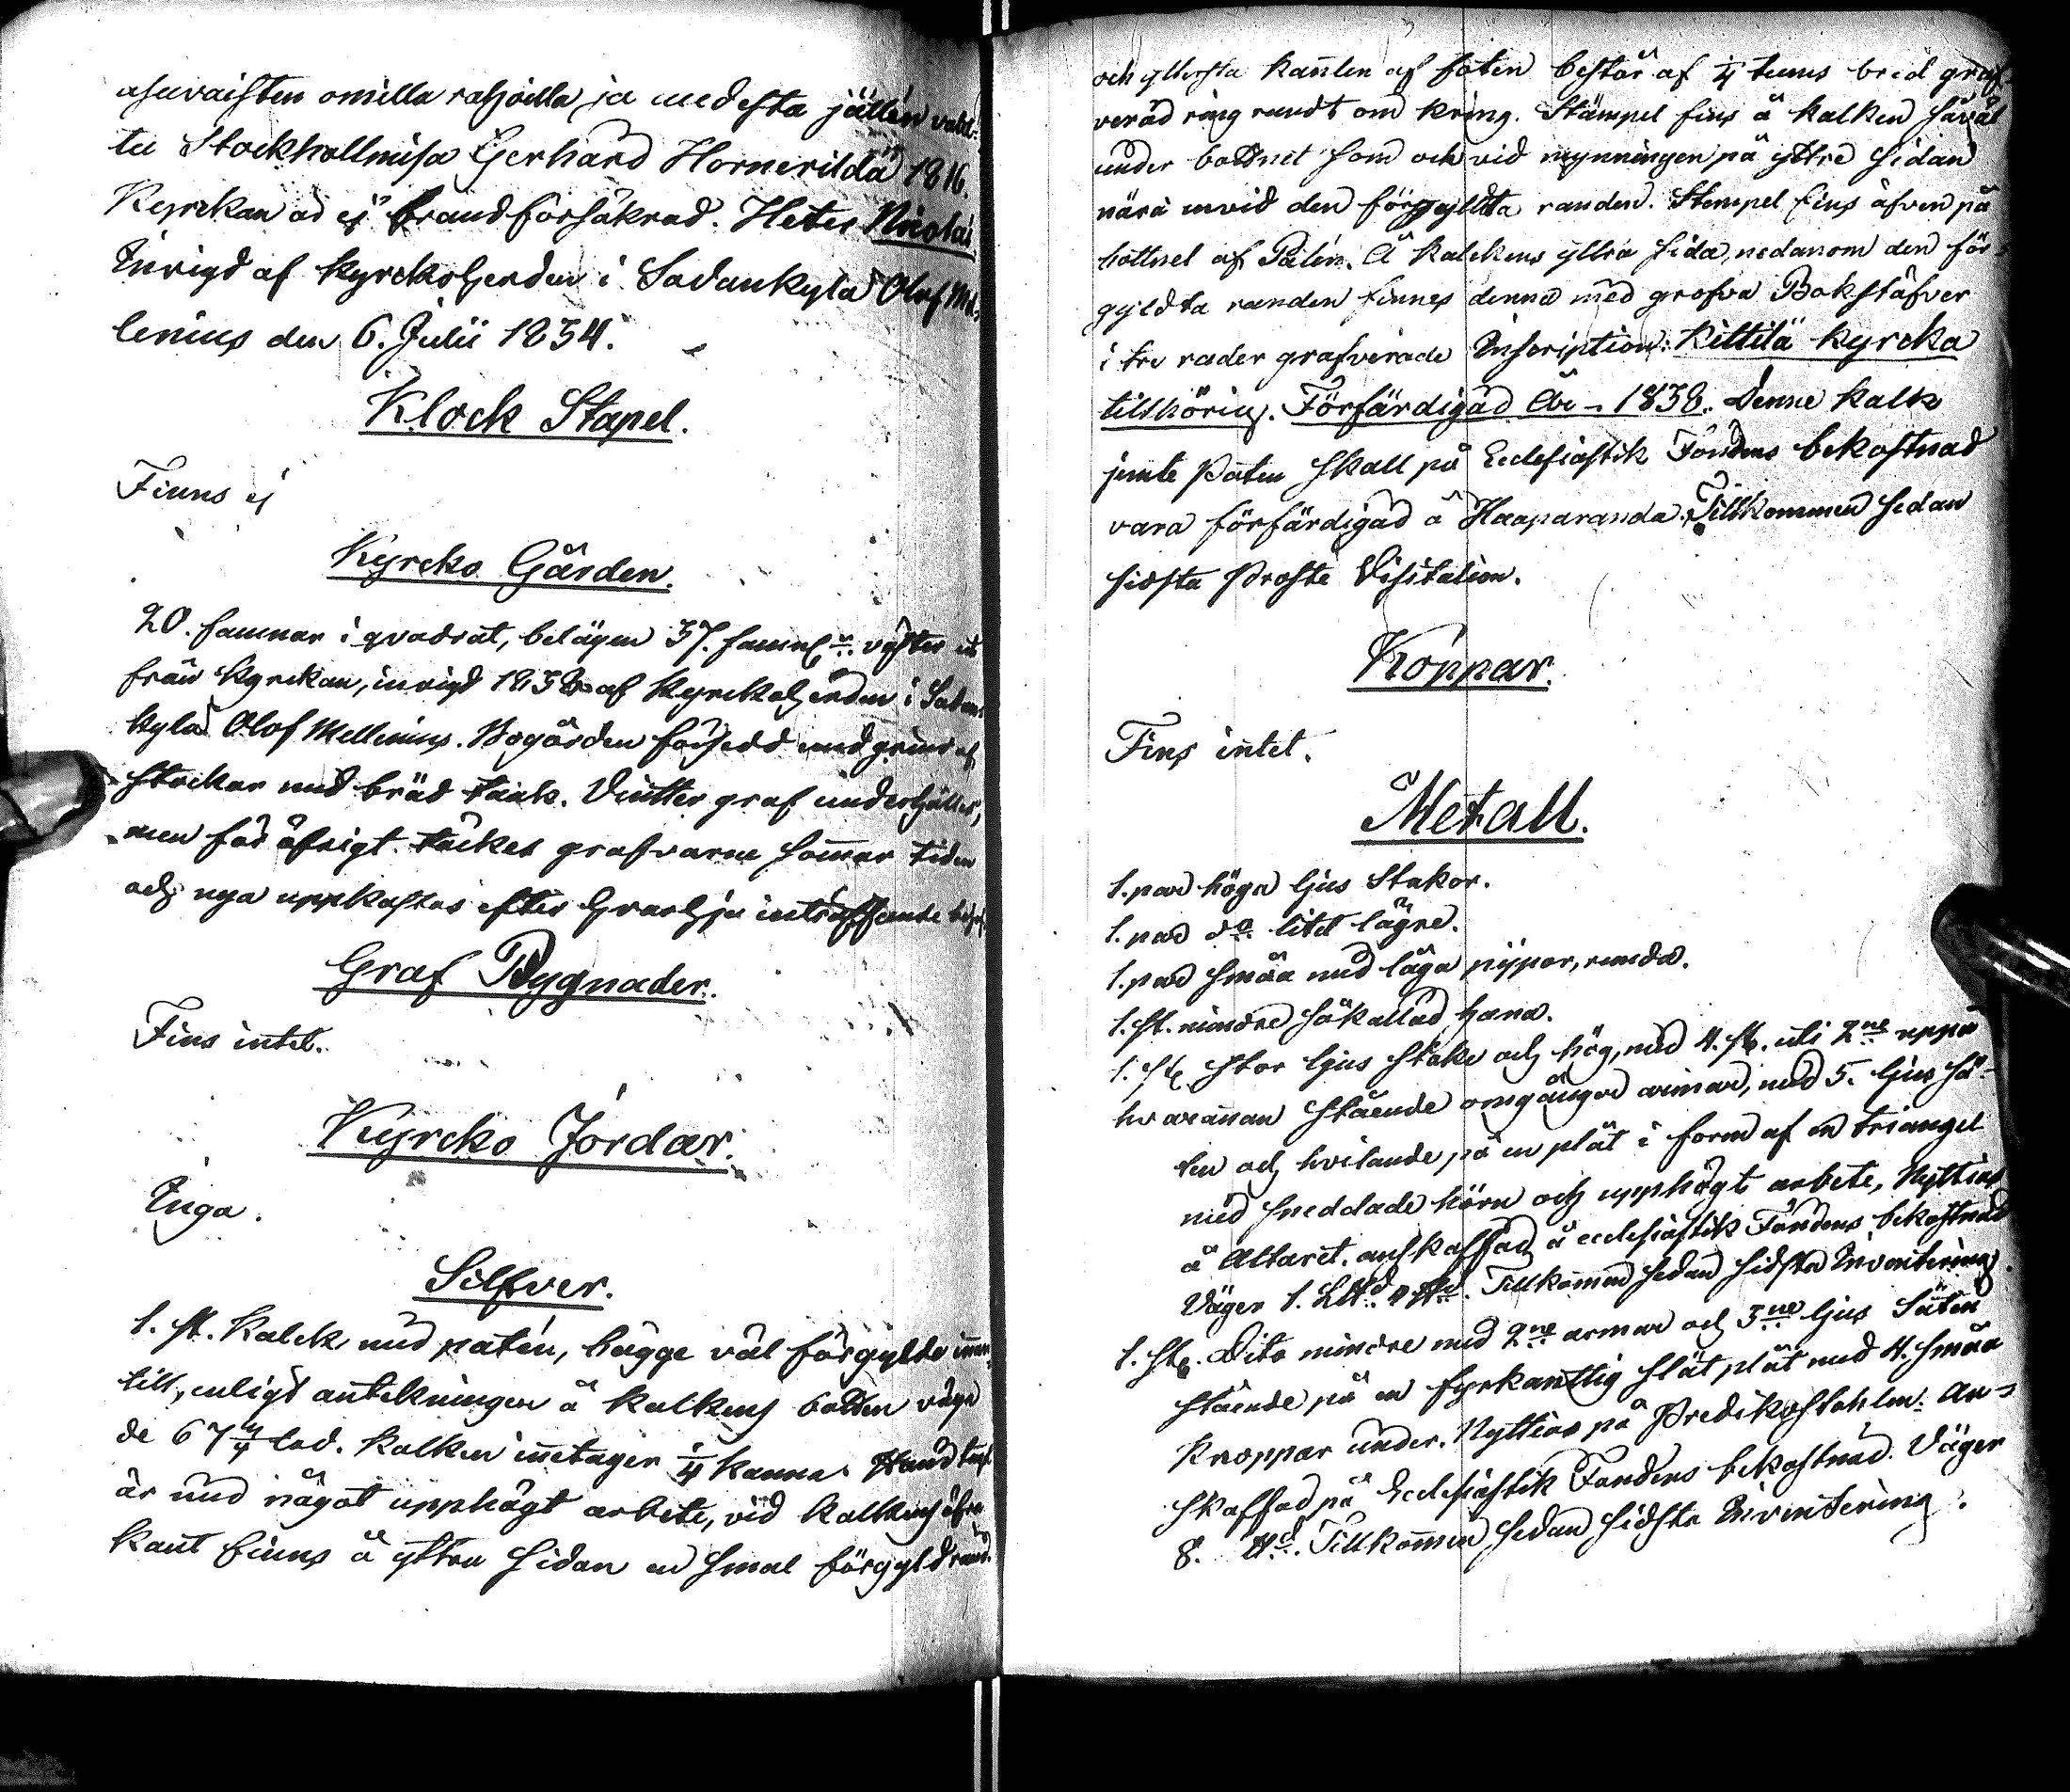 asuvaisten omilla rahoilla ja medesta jällen valet-
tu Stockhollmisa Gerhard Hornerilda 1816.
Kyrckan är ej brandförsäkrad. Heter Nicolai
Invigd af Kyrckoherden i Sodankylä Olof Mel-
lenius den 6. Julii 1834.
Klock Stapel.
Finns ej
Kyrcko Gården.
20. famnar i qvadrat, belägen 37. famnar väster ut
från Kyrckan, invigd 1832 af Kyrckoherden i Sodan-
kylä Olof Mellenius. Bogården försedd med grind af
stockar med bräd taak. Vintter graf underhålles,
men för öfrigt täckes grafvarne sommar tiden
och nya uppkastas efter hvarje inträffande behof
Graf Bygnader.
Fins intet.
Kyrcko Jordar.
Inga.
Silfver.
1. st. Kalck med patén, bägge väl förgylde innan-
till, enligt anteckningen å kalkens botten väga
de 67 1/4 lod. Kalken intager 1/4 kanna. Handtaget
är med något upphögt arbete, vid kalkens öfra
kant finns å yttra sidan en smal förgyld rand.
och yttersta kanten af foten består af 1/4 tums bred graf-
verad ring rundt om kring. Stämpel fins å kalken såväl
under bottnet som och vid mynningen på yttre sidan
nära invid den förgyldta randen. Stempel fins äfven på
bottnet af Patén. Å kalckens yttra sida, nedanom den för-
gyldta randen finnes denna med grofva Bokstäfver
i tre rader grafverade Inscription: Kittilä Kyrcka
tillhörig. Förfärdigad År - 1838. Denne kalk
jemte Paten skall på Ecclesiastik Fondens bekostnad
vara förfärdigad å Haaparanda. Tillkommen sedan
sidsta Proste Visitation.
Koppar.
Fins intet.
Metall.
1. par höga ljus Stakar.
1. par d:o litet lägre.
1. par smäa med låga pijpor, runda.
1. st. mindre såkallad hand.
1. st. stor ljus stake och hög, med 4. st. uti 2ne uppå
hvarannan stående omgångar armar, med 5. ljus sä-
ten och hvilande på en plåt i form af en triangel
med sneddade hörn och upphögt arbete, Nyttias
å Altaret. anskaffad å ecclesiastik Fondens bekostnad
Väger 1. Tillkommen sedan sidsta Inventering.
1. st. Dito mindre med 2ne armar och 3ne ljus Säten
stående på en fyrkanttig slät plåt med 4. smäa
Knoppar under. Nyttias på Predikostohlen. An-
skaffad på Ecclesiastik Fondens bekostnad. Väger
8. Tillkommen sedan sidsta Inventering.